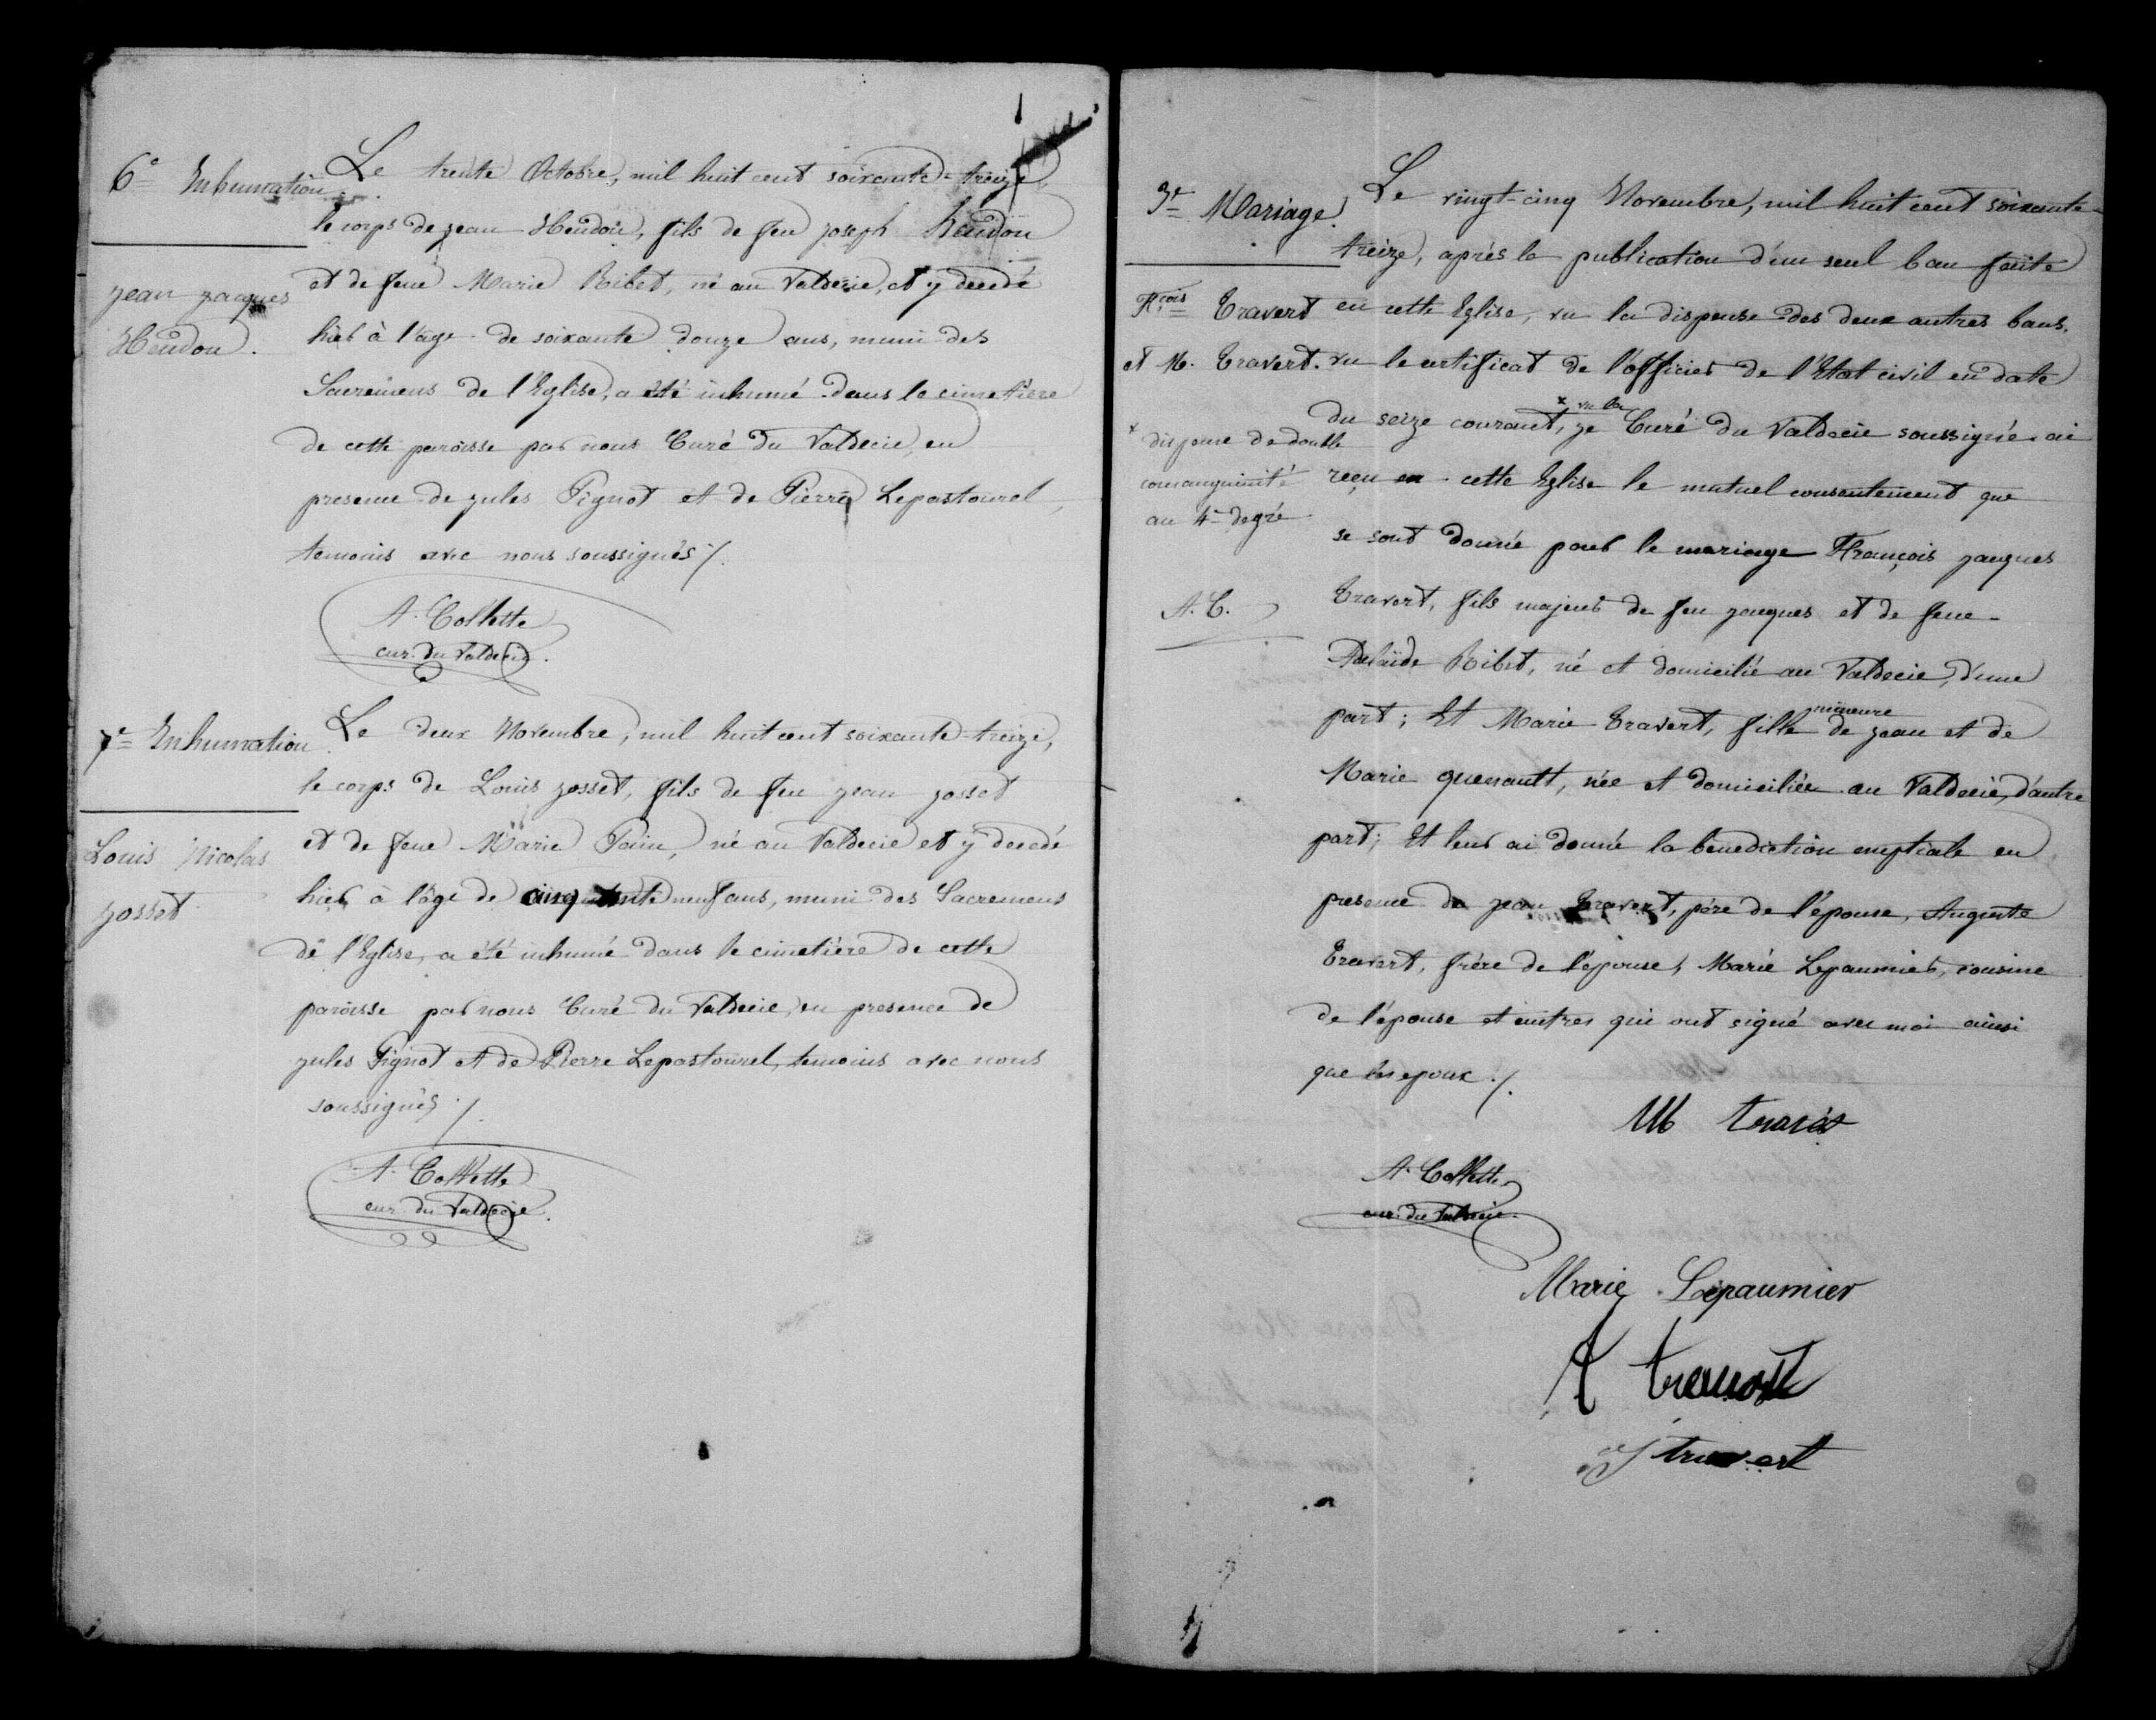 6e Inhumation.
Jean Jacques
Heudon.
Le trente Octobre, mil huit cent soixante-treize,
le corps de Jean Heudon, fils de feu Joseph Heudon
et de feue Marie Ribet, né au Valdecie, et y decedé
hier à l'age de soixante douze ans, muni des
Sacremens de l'Eglise, a été inhumé dans le cimetière
de cette paroisse par nous Curé du Valdecie, en
presence de Jules Pignot et de Pierre Lepastourel,
temoins avec nous soussignés /.
A. Collette
cur. du Valdecie.
7e Inhumation.
Louis Nicolas
Josset
Le deux Novembre, mil huit cent soixante-treize,
le corps de Louis Josset, fils de feu Jean Josset
et de feue Marie Pain, né au Valdecie et y decedé
hier à l'âge de cinquante neuf ans, muni des Sacremens
de l'Eglise, a été inhumé dans le cimetière de cette
paroisse par nous Curé du Valdecie, en presence de
Jules Pignot et de Pierre Lepastourel, temoins avec nous
soussignés /.
A. Collette
cur. du Valdecie.
3e Mariage.
Fcois Travert
et M. Travert.
x dispense de double
consanguinité
au 4e degré
A. C.
Le vingt-cinq Novembre, mil huit cent soixante-
treize, après la publication d'un seul ban faite
en cette Eglise, vu la dispense des deux autres bans,
vu le certificat de l'officier de l'Etat civil en date
x vu la
du seize courant, je Curé du Valdecie soussigné ai
reçu en cette Eglise le mutuel consentement que
se sont donné pour le mariage François Jacques
Travert, fils majeur de feu Jacques et de feue
Adelaïde Ribet, né et domicilié au Valdecie, d'une
mineure
part; Et Marie Travert, fille de Jean et de
Marie Quenault, née et domiciliée au Valdecie, d'autre
part; Et leur ai donné la bénediction nuptiale en
presence de Jean Travert, père de l'épouse, Auguste
Travert, frère de l'épouse, Marie Lepaumier, cousine
de l'épouse et autres qui ont signé avec moi ainsi
que les epoux /.
M travert
A. Collette
cur. du Valdecie.
Marie Lepaumier
A travert
J travert